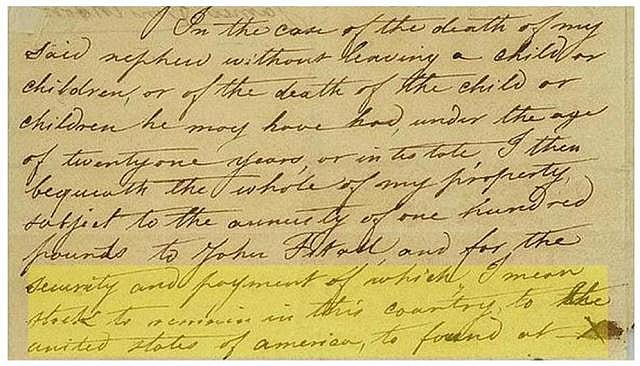 In the case of the death of my
said nephew without leaving a child or
children, or of the death of the child or
children he may have had, under the age
of twenty one years, or intestate, I then
bequeath the whole of my property,
subject to the annuity of one hundred
pounds to John and for the
security and payment of which, I mean
stock to remain in this country, to the
united states of america, to found at